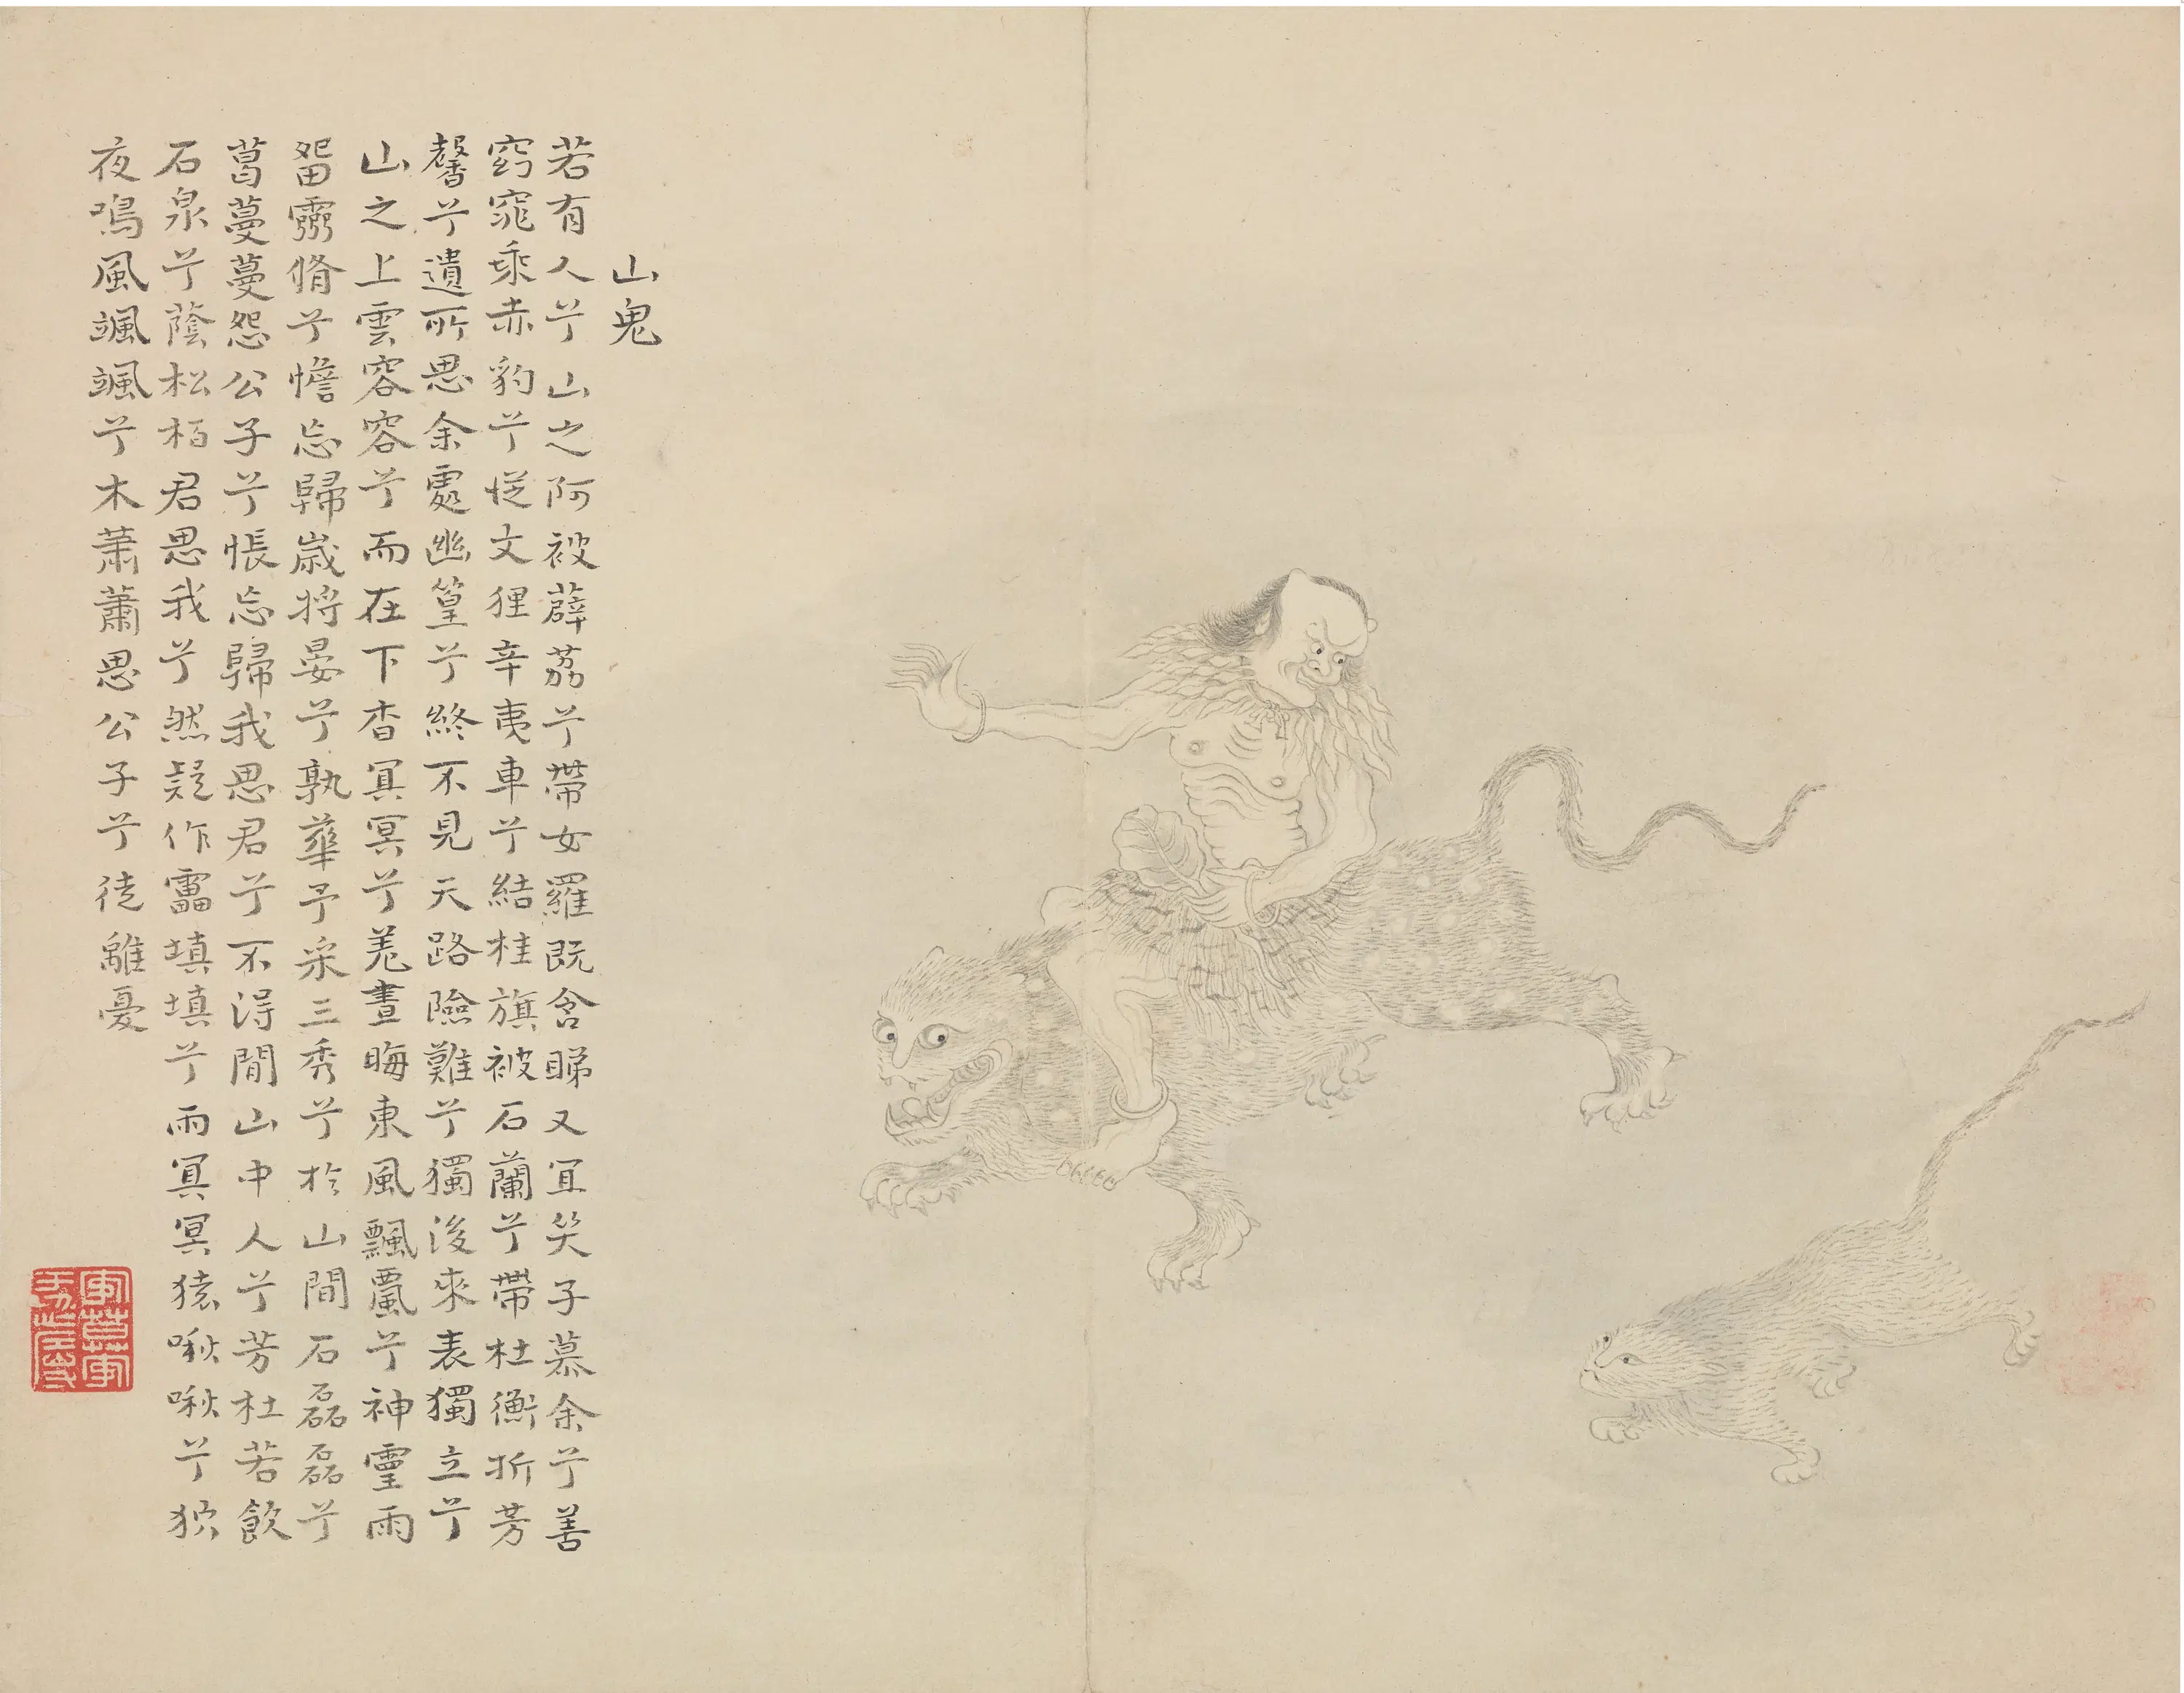 山鬼
若有人兮山之阿被薜荔兮帶女羅既含睇又宜笑子慕余兮善
窈窕乘赤豹兮從文狸辛夷車兮結桂旗被石蘭兮帶杜衡折芳
馨兮遺所思余處幽篁兮終不見天路險難兮獨後來表獨立兮
山之上雲容容兮而在下杳冥冥兮羌晝晦東風飄飄兮神靈雨
留靈脩兮憺忘歸歲將晏兮孰華予采三秀兮於山間石磊磊兮
葛蔓蔓怨公子兮悵忘歸我思君兮不得閒山中人兮芳杜若飲
石泉兮蔭松柏君思我兮然疑作靁填填兮雨冥冥猿啾啾兮狖
夜鳴風颯颯兮木蕭蕭思公子兮徒離憂